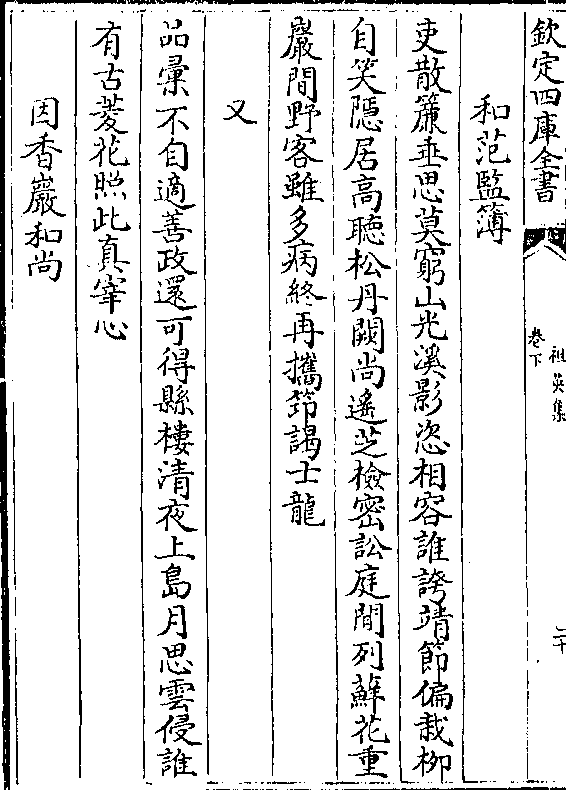 欽定四庫全書
祖英集
卷下
二十
和范監簿
吏散簾垂思莫窮山光溪影恣相容誰誇靖節偏栽柳
自笑隱居高聽松丹闕尚遙芝檢密訟庭閒列蘚花重
巖間野客雖多病終再攜筇謁士龍
又
品彚不自適善政還可得縣樓清夜上島月思雲侵誰
有古菱花照此真宰心
因香巖和尚